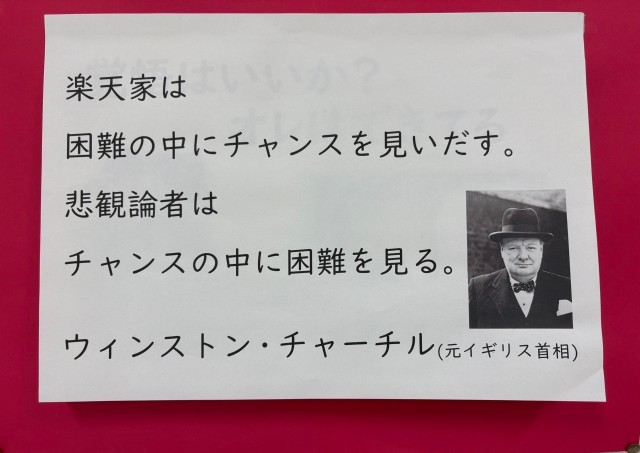 楽天家は
困難の中にチャンスを見いだす。
悲観論者は
チャンスの中に困難を見る。
ウィンストン・チャーチル(元イギリス首相)